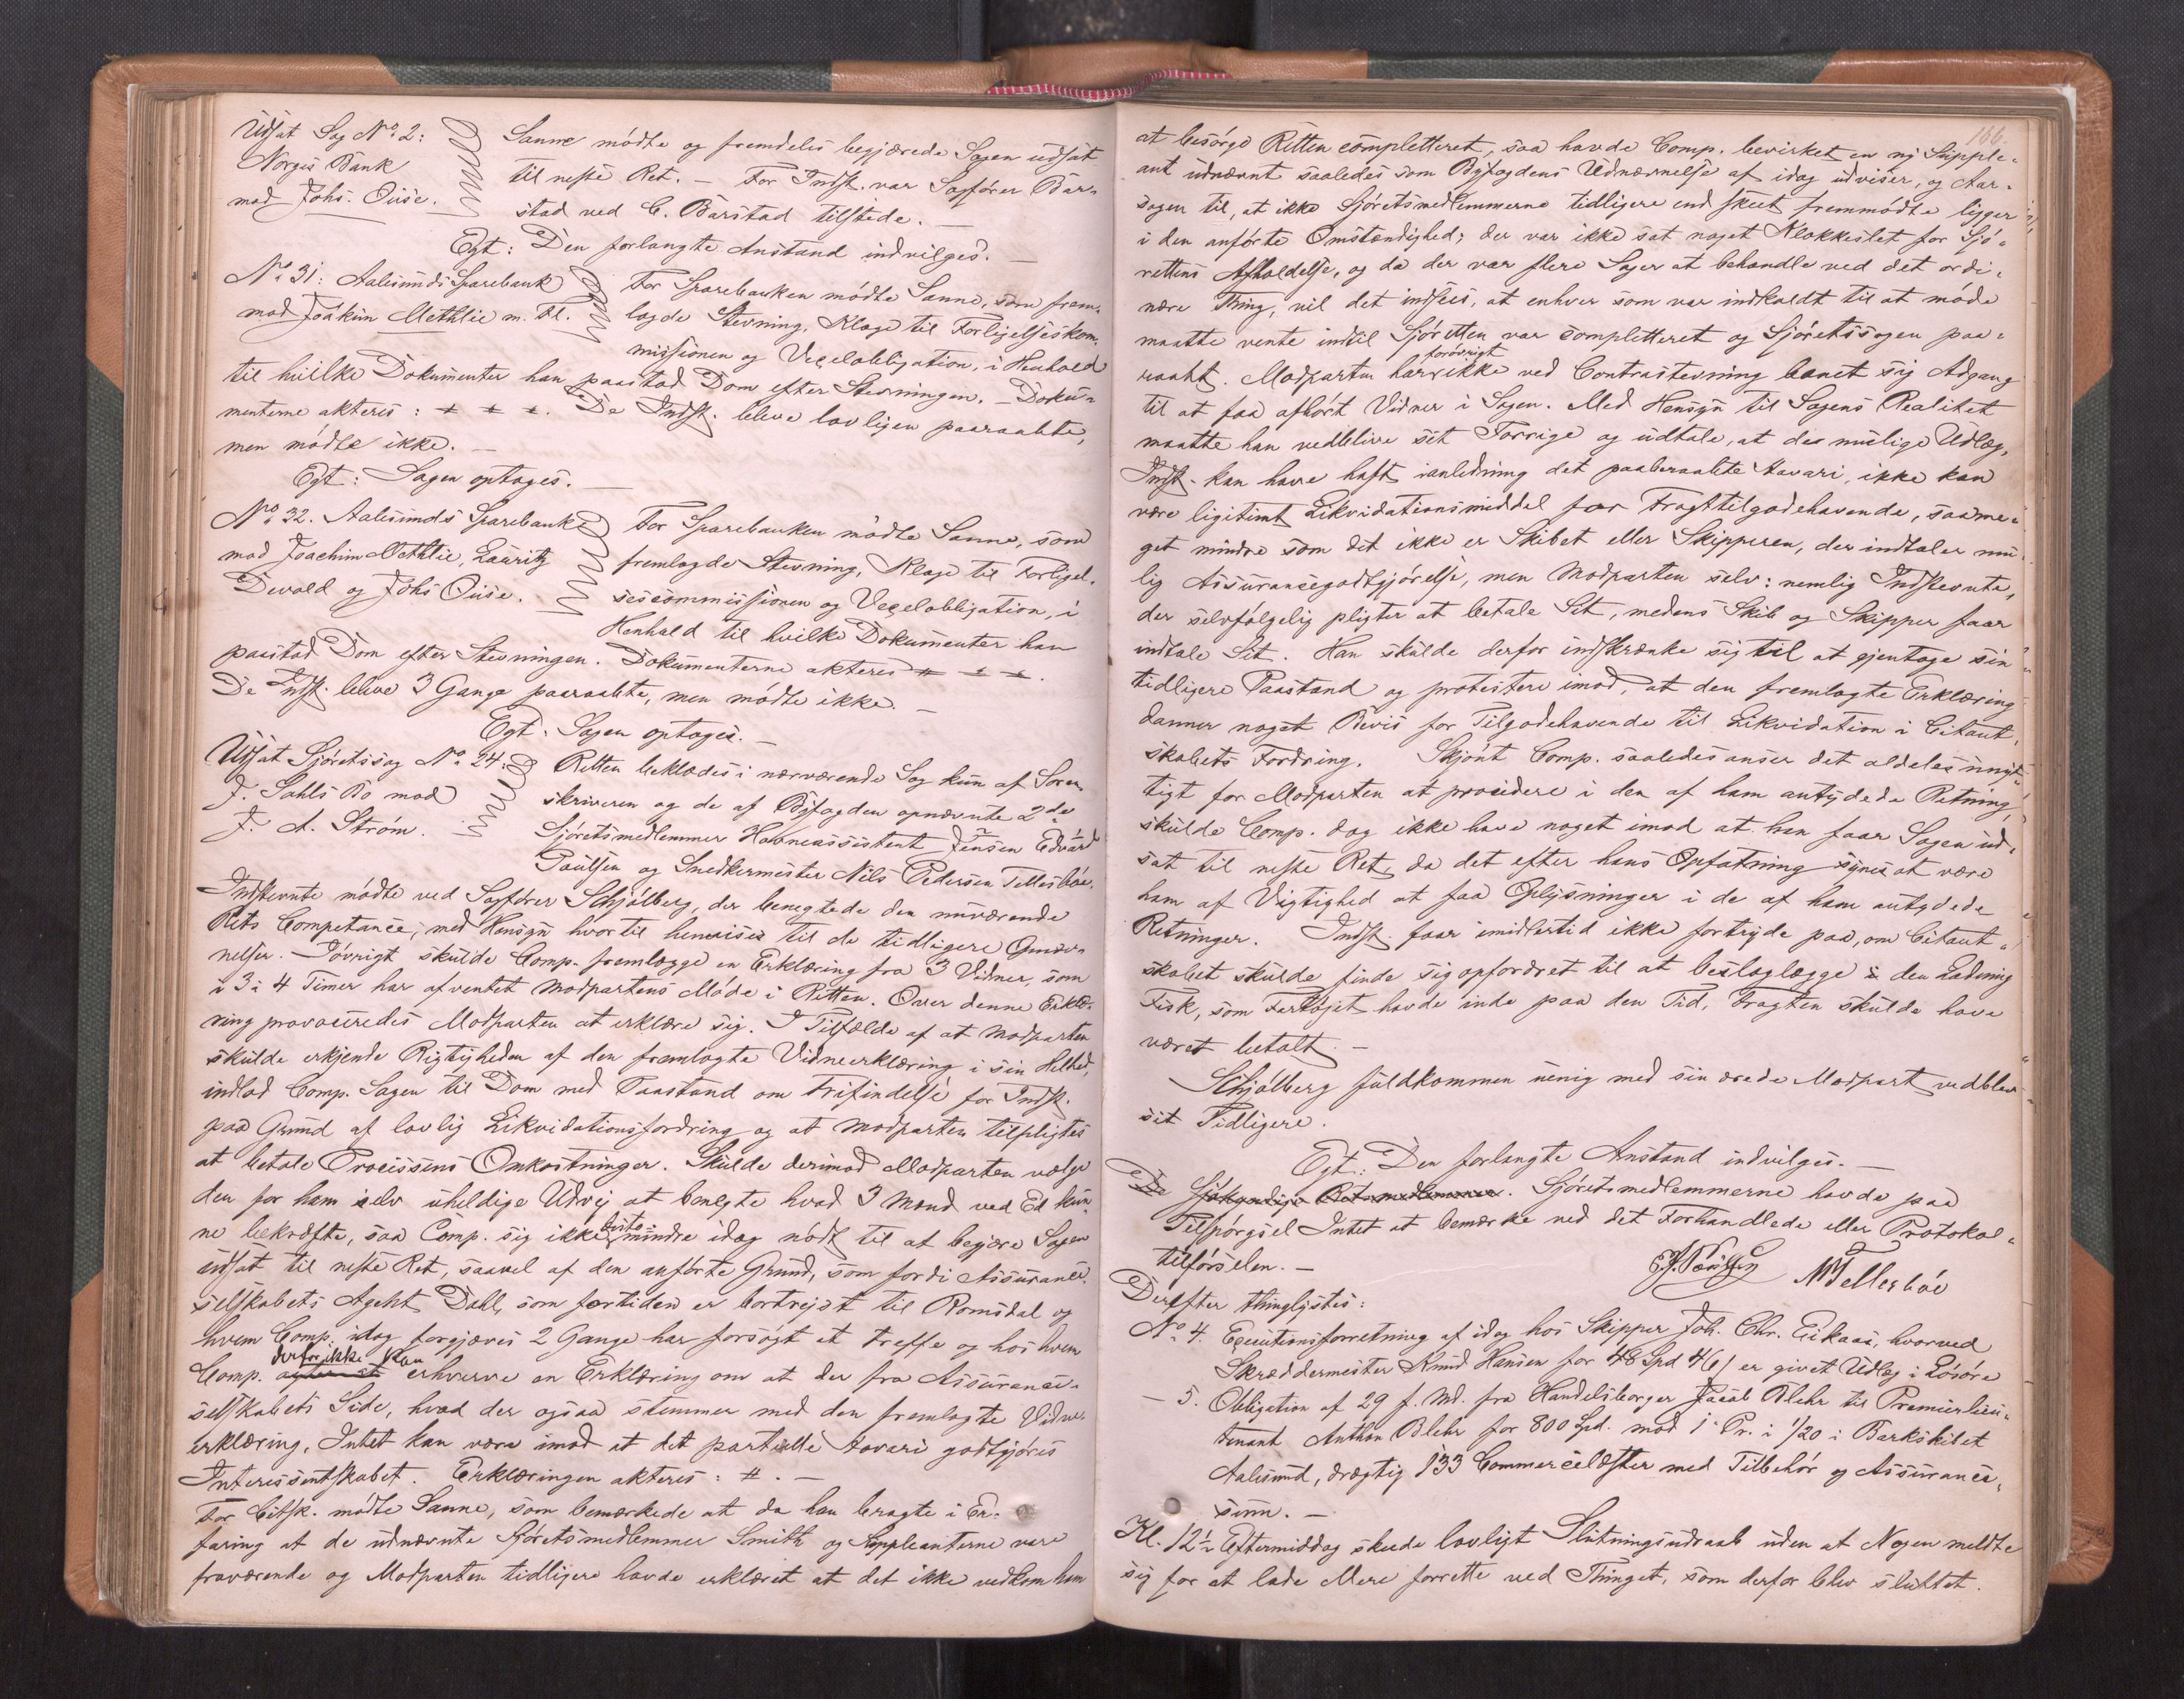 Udsat Sag No. 2:
Norges Bank
mod Johs. Ouse.
Sanne mödte og fremdeles begjærede Sagen udsat
til neste Ret. — For Indst. var Sagfører Bar-
stad ved C. Barstad tilstede. —
Egt: Den forlangte Anstand indvilges. —
No. 31: Aalesunds Sparebank
mod Joakim Methlie m. Fl.
For Sparebanken mödte Sanne, som frem-
lagde Stevning, Klage til Forligelseskom-
missionen og Vexelobligation, i Henhold
til hvilke Dokumenter han paastod Dom efter Stevningen. — Doku-
menterne akteres: # # #. De Indst. bleve lovligen paaraabte,
men mödte ikke. —
Egt: Sagen optages. —
No. 32. Aalesunds Sparebank
mod Joachim Methlie, Lauritz
Devold og Johs Ouse.
For Sparebanken mödte Sanne, som
fremlagde Stevning, Klage til Forligel-
sescommissionen og Vexelobligation, i
Henhold til hvilke Dokumenter han
paastod Dom efter Stevningen. Dokumenterne akteres # # #.
De Indst. bleve 3 Gange paaraabte, men mödte ikke. —
Egt: Sagen optages. —
Udsat Sjöretssag No. 24:
J. Dahls Bo mod
J. A. Ström.
Retten beklædes i nærværende Sag kun af Soren-
skriveren og de af Byfogden opnævnte 2de
Sjöretsmedlemmer Havneassistent Jensen Edvard
Paulsen og Snedkermester Nils Pedersen Tellesböe.
Indstevnte mödte ved Sagförer Schjölberg, der benegtede den nuværende
Rets Competance, med Hensyn hvortil henvises til de tidligere
. Iövrigt skulde Comp. fremlægge en Erklæring fra 3 Vidner, som
i 3 à 4 Timer har afventet Modpartens Möde i Retten. Over denne Erklæ-
ring provoceredes Modparten at erklære sig. I Tilfælde af at Modparten
skulde erkjende Rigtigheden af den fremlagte Vidneerklæring i sin Helhed,
indlod Comp. Sagen til Dom med Paastand om Frifindelse for Indst.
paa Grund af lovlig Likvidationsfordring og at Modparten tilpligtes
at betale Processens Omkostninger. Skulde derimod Modparten vælge
den for ham selv uheldige Udvej at benegte hvad 3 Mænd ved Ed kun-
ne bekræfte, saa Comp. sig ikke desto mindre idag nödt til at begjære Sagen
udsat til neste Ret, saavel af den anförte Grund, som fordi Assurance-
selskabets Agent Dahl, som fortiden er bortrejst til Romsdal og
hvem Comp. idag forgjæves 2 Gange har forsögt at treffe og hos hvem
Comp. derfor ikke kan erhverve en Erklæring om at der fra Assurance-
selskabets Side, hvad der ogsaa stemmer med den fremlagte Vidne-
erklæring, Intet kan være imod at det partielle Havari godtgjöres
Interessentskabet. Erklæringen akteres: #. —
For Citsk. mödte Sanne, som bemærkede at da han bragte i Er-
faring at de udnævnte Sjöretsmedlemmer Smith og Suppleanterne vare
fraværende og Modparten tidligere havde erklæret at det ikke vedkom ham
166.
at besörge Retten completteret, saa havde Comp. bevirket en ny Supple-
ant udnævnt saaledes som Byfogdens Udnævnelse af idag udviser, og Aar-
sagen til, at ikke Sjöretsmedlemmerne tidligere end skeet fremmödte ligger
i den anförte Omstændighed; der var ikke sat noget Klokkeslet for Sjö-
rettens Afholdelse, og da der var flere Sager at behandle ved det ordi-
nære Thing, vil det indsees, at enhver som var indkaldt til at möde
maatte vente indtil Sjöretten var completteret og Sjöretssagen paa-
raabt. Modparten har forövrigt ikke ved Contrastevning banet sig Adgang
til at faa afhört Vidner i Sagen. Med Hensyn til Sagens Realitet
maatte han vedblive sit Forrige og udtale, at de mulige Udlæg,
Indst. kan have haft ianledning det paaberaabte Havari, ikke kan
være ligitimt Likvidationsmiddel for Fragttilgodehavende, saame-
get mindre som det ikke er Skibet eller Skipperen, der indtaler mu-
lig Assurancegodtgjörelse, men Modparten selv: nemlig Indstevnte,
der selvfölgelig pligter at betale Sit, medens Skib og Skipper faar
indtale Sit. Han skulde derfor indskrænke sig til at gjentage sin
tidligere Paastand og protestere imod, at den fremlagte Erklæring
danner noget Bevis for Tilgodehavende til Likvidation i Citant-
skabets Fordring. Skjönt Comp. saaledes anser det aldeles unyt-
tigt for Modparten at procedere i den af ham antydede Retning,
skulde Comp. dog ikke have noget imod at han faar Sagen ud-
sat til neste Ret, da det efter hans Opfatning synes at være
ham af Vigtighed at faa Oplysninger i de af ham antydede
Retninger. Indst. faar imidlertid ikke fortryde paa, om Citant-
skabet skulde finde sig opfordret til at beslaglægge den Ladning
Fisk, som Fartöjet havde inde paa den Tid, Fragten skulde have
været betalt. —
Schjölberg fuldkommen uenig med sin ærede Modpart vedblev
sit Tidligere.
Egt: Den forlangte Anstand indvilges. —
De Sjökyndige Retsmedlemmer. Sjöretsmedlemmerne havde paa
Tilspörgsel Intet at bemærke ved det Forhandlede eller Protokol-
tilförselen. —
E. J. Paulsen N. P. Tellesböe
Derefter thinglystes:
No. 4. Executionsforretning af idag hos Skipper Joh. Chr. Eikaas, hvorved
Skræddermester Knud Hansen for 48 Spd er givet Udlæg i Lösöre
— 5. Obligation af 29 f. Md. fra Handelsborger Jacob Blehr til Premierlieu-
tenant Anthon Blehr for 800 Spd. mod 1. Pr. i 1/20 i Barkskibet
Aalesund, drægtig 133 Commercelæster med Tilbehör og Assurance-
sum. —
Kl. 12½ Eftermiddag skede lovligt Slutningsudraab uden at Nogen meldte
sig for at lade Mere forrette ved Thinget, som derfor blev sluttet.